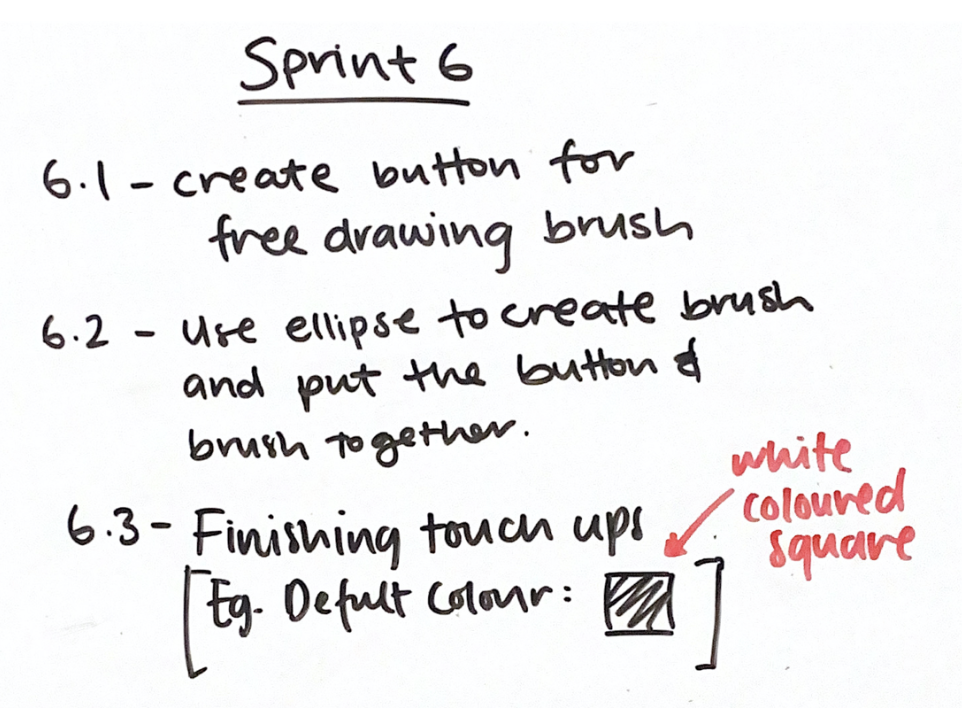 Sprint 6
6.1 - create button for
free drawing brush
6.2 - Use ellipse to create brush
and put the button &
brush together.
6.3 - Finishing touch ups
[Eg. Defult Colour: ]
white
coloured
square